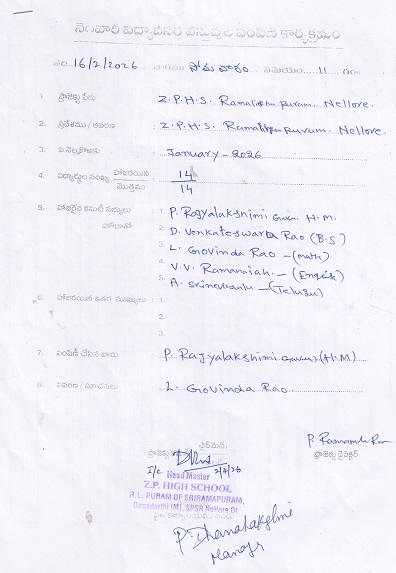 నెలవారీ విద్యావసర వస్తువుల పంపిణీ కార్యక్రమం
తేది: 16/2/2026 వారము సోమవారం సమయం 11 గం
1. ప్రాజెక్టు పేరు : Z.P.H.S. Ramalingapuram. Nellore.
2. ప్రదేశము / ఆవరణ : Z.P.H.S. Ramalingapuram. Nellore.
3. ఏ నెల కొరకు : January - 2026
4. విద్యార్థుల సంఖ్య హాజరయిన 14
మొత్తము 14
5. హాజరైన కమిటీ సభ్యులు 1. P. Rajyalakshimi Garu. H.M.
హోదాతో 2. D. Venkateswarla Rao (B.S)
3. L. Govinda Rao - (math)
4. V.V. Ramanaiah - (English)
5. A. Srinevasulu - (Telugu)
6. హాజరయిన ఇతర ముఖ్యులు : 1.
2.
3.
7. పంపిణీ చేసిన వారు : P. Rajyalakshimi Garu (H.M)
8. వివరణ / సూచనలు : L. Govinda Rao
ఛైర్మెన్,
ప్రాజెక్టు
ప్రాజెక్టు డైరెక్టర్
I/c Head Master
Z.P. HIGH SCHOOL
R.L. PURAM OF SRIRAMAPURAM,
Dagadarthi (M), SPSR Nellore Dt.
P. Dhanalakshmi
Manager